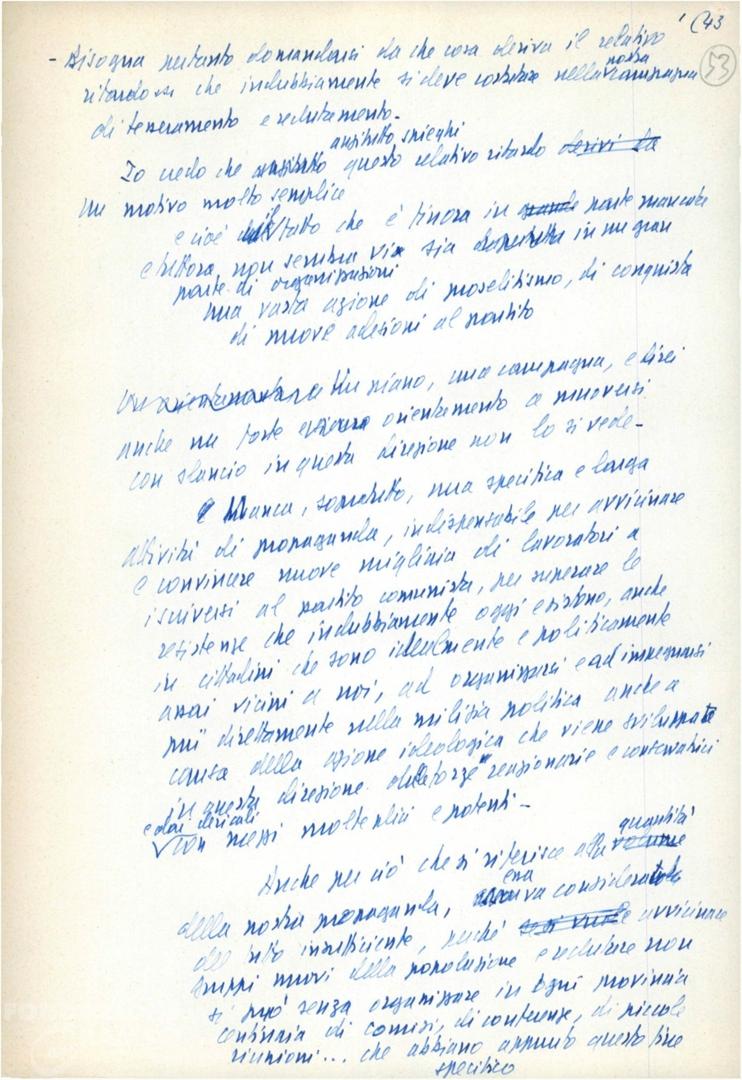 ' C43
53
- Bisogna pertanto domandarsi da che cosa deriva il relativo
ritardo che indubbiamente si deve constatare nella nostra campagna
di tesseramento e reclutamento -
anzitutto spieghi
Io credo che anzitutto questo relativo ritardo derivi da
un motivo molto semplice
e cioè il fatto che è finora in grande parte mancata
e tuttora non sembra vi sia in gran
parte di organizzazioni
una vasta azione di proselitismo, di conquista
di nuove adesioni al partito
Un orientamento Un piano, una campagna, e direi
anche un forte orientamento a muoversi
con slancio in questa direzione non lo si vede -
E Manca, soprattutto, una specifica e larga
attività di propaganda, indispensabile per avvicinare
e convincere nuove migliaia di lavoratori a
iscriversi al partito comunista, per superare le
resistenze che indubbiamente oggi esistono, anche
in cittadini che sono idealmente e politicamente
assai vicini a noi, ad organizzarsi e ad impegnarsi
più direttamente nella milizia politica anche a
causa della azione ideologica che viene sviluppata
in questa direzione dalle forze reazionarie e conservatrici
e dai clericali
con mezzi molteplici e potenti -
quantità
Anche per ciò che si riferisce alla volume
della nostra propaganda, essa va considerata
del tutto insufficiente, perché se si vuole avvicinare
gruppi nuovi della popolazione e reclutare non
si può senza organizzare in ogni provincia
centinaia di comizi, di conferenze, di piccole
riunioni... che abbiano appunto questo fine
specifico